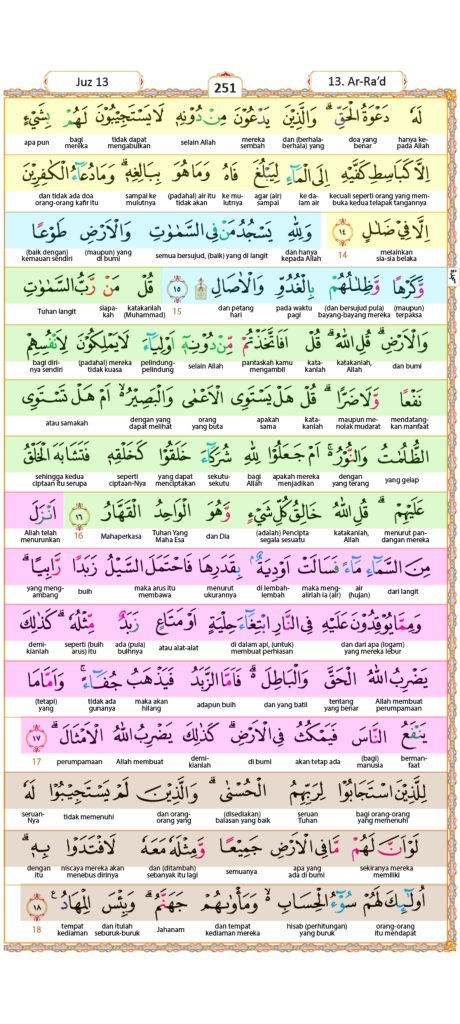 Juz 13
251
13. Ar-Ra’d
لَهٗ دَعْوَةُ الْحَقِّۗ وَالَّذِيْنَ يَدْعُوْنَ مِنْ دُوْنِهٖ لَا يَسْتَجِيْبُوْنَ لَهُمْ بِشَيْءٍ
hanya kepada Allah doa yang benar dan (berhala-berhala) yang mereka sembah selain Allah tidak dapat mengabulkan bagi mereka apa pun
اِلَّا كَبَاسِطِ كَفَّيْهِ اِلَى الْمَاۤءِ لِيَبْلُغَ فَاهُ وَمَا هُوَ بِبَالِغِهٖۗ وَمَا دُعَاۤءُ الْكٰفِرِيْنَ
kecuali seperti orang yang membuka kedua telapak tangannya ke dalam air agar (air) sampai ke mulutnya (padahal) air itu tidak akan sampai ke mulutnya dan tidak ada doa orang-orang kafir itu
اِلَّا فِيْ ضَلٰلٍ ١٤ وَلِلّٰهِ يَسْجُدُ مَنْ فِى السَّمٰوٰتِ وَالْاَرْضِ طَوْعًا
melainkan sia-sia belaka 14 dan hanya kepada Allah semua bersujud, (baik) yang di langit (maupun) yang di bumi (baik dengan) kemauan sendiri
سجدة
وَّكَرْهًا وَّظِلٰلُهُمْ بِالْغُدُوِّ وَالْاٰصَالِ ۩ ١٥ قُلْ مَنْ رَّبُّ السَّمٰوٰتِ
(maupun) terpaksa (dan bersujud pula) bayang-bayang mereka pada waktu pagi dan petang hari 15 katakanlah (Muhammad) siapakah Tuhan langit
وَالْاَرْضِۗ قُلِ اللّٰهُۗ قُلْ اَفَاتَّخَذْتُمْ مِّنْ دُوْنِهٖٓ اَوْلِيَاۤءَ لَا يَمْلِكُوْنَ لِاَنْفُسِهِمْ
dan bumi katakanlah, Allah katakanlah pantaskah kamu mengambil selain Allah pelindung-pelindung (padahal) mereka tidak kuasa bagi diri-nya sendiri
نَفْعًا وَّلَا ضَرًّاۗ قُلْ هَلْ يَسْتَوِى الْاَعْمٰى وَالْبَصِيْرُ ەۙ اَمْ هَلْ تَسْتَوِى
mendatangkan manfaat maupun menolak mudarat katakanlah apakah sama orang yang buta dengan yang dapat melihat atau samakah
الظُّلُمٰتُ وَالنُّوْرُ ەۚ اَمْ جَعَلُوْا لِلّٰهِ شُرَكَاۤءَ خَلَقُوْا كَخَلْقِهٖ فَتَشَابَهَ الْخَلْقُ
yang gelap dengan yang terang apakah mereka menjadikan bagi Allah sekutu-sekutu yang dapat menciptakan seperti ciptaan-Nya sehingga kedua ciptaan itu serupa
عَلَيْهِمْۗ قُلِ اللّٰهُ خَالِقُ كُلِّ شَيْءٍ وَّهُوَ الْوَاحِدُ الْقَهَّارُ ١٦ اَنْزَلَ
menurut pandangan mereka katakanlah, Allah (adalah) Pencipta segala sesuatu dan Dia Tuhan Yang Maha Esa Mahaperkasa 16 Allah telah menurunkan
مِنَ السَّمَاۤءِ مَاۤءً فَسَالَتْ اَوْدِيَةٌ ۢ بِقَدَرِهَا فَاحْتَمَلَ السَّيْلُ زَبَدًا رَّابِيًاۗ
dari langit air (hujan) maka mengalirlah ia (air) di lembah-lembah menurut ukurannya maka arus itu membawa buih yang mengambang
وَمِمَّا يُوْقِدُوْنَ عَلَيْهِ فِى النَّارِ ابْتِغَاۤءَ حِلْيَةٍ اَوْ مَتَاعٍ زَبَدٌ مِّثْلُهٗۗ كَذٰلِكَ
dan dari apa (logam) yang mereka lebur di dalam api, (untuk) membuat perhiasan atau alat-alat ada (pula) buihnya seperti (buih arus) itu demikianlah
يَضْرِبُ اللّٰهُ الْحَقَّ وَالْبَاطِلَ ەۗ فَاَمَّا الزَّبَدُ فَيَذْهَبُ جُفَاۤءًۚ وَاَمَّا مَا
Allah membuat perumpamaan tentang yang benar dan yang batil adapun buih maka akan hilang tidak ada gunanya (tetapi) yang
يَنْفَعُ النَّاسَ فَيَمْكُثُ فِى الْاَرْضِۗ كَذٰلِكَ يَضْرِبُ اللّٰهُ الْاَمْثَالَۗ ١٧
bermanfaat (bagi) manusia akan tetap ada di bumi demikianlah Allah membuat perumpamaan 17
لِلَّذِيْنَ اسْتَجَابُوْا لِرَبِّهِمُ الْحُسْنٰىۗ وَالَّذِيْنَ لَمْ يَسْتَجِيْبُوْا لَهٗ
bagi orang-orang yang memenuhi seruan Tuhan (disediakan) balasan yang baik dan orang-orang yang tidak memenuhi seruan-Nya
لَوْ اَنَّ لَهُمْ مَّا فِى الْاَرْضِ جَمِيْعًا وَّمِثْلَهٗ مَعَهٗ لَافْتَدَوْا بِهٖۗ
sekiranya mereka memiliki apa yang ada di bumi semuanya dan (ditambah) sebanyak itu lagi niscaya mereka akan menebus dirinya dengan itu
اُولٰۤىِٕكَ لَهُمْ سُوْۤءُ الْحِسَابِ ەۙ وَمَأْوٰىهُمْ جَهَنَّمُۗ وَبِئْسَ الْمِهَادُ ࣖ ١٨
orang-orang itu mendapat hisab (perhitungan) yang buruk dan tempat kediaman mereka Jahanam dan itulah seburuk-buruk tempat kediaman 18